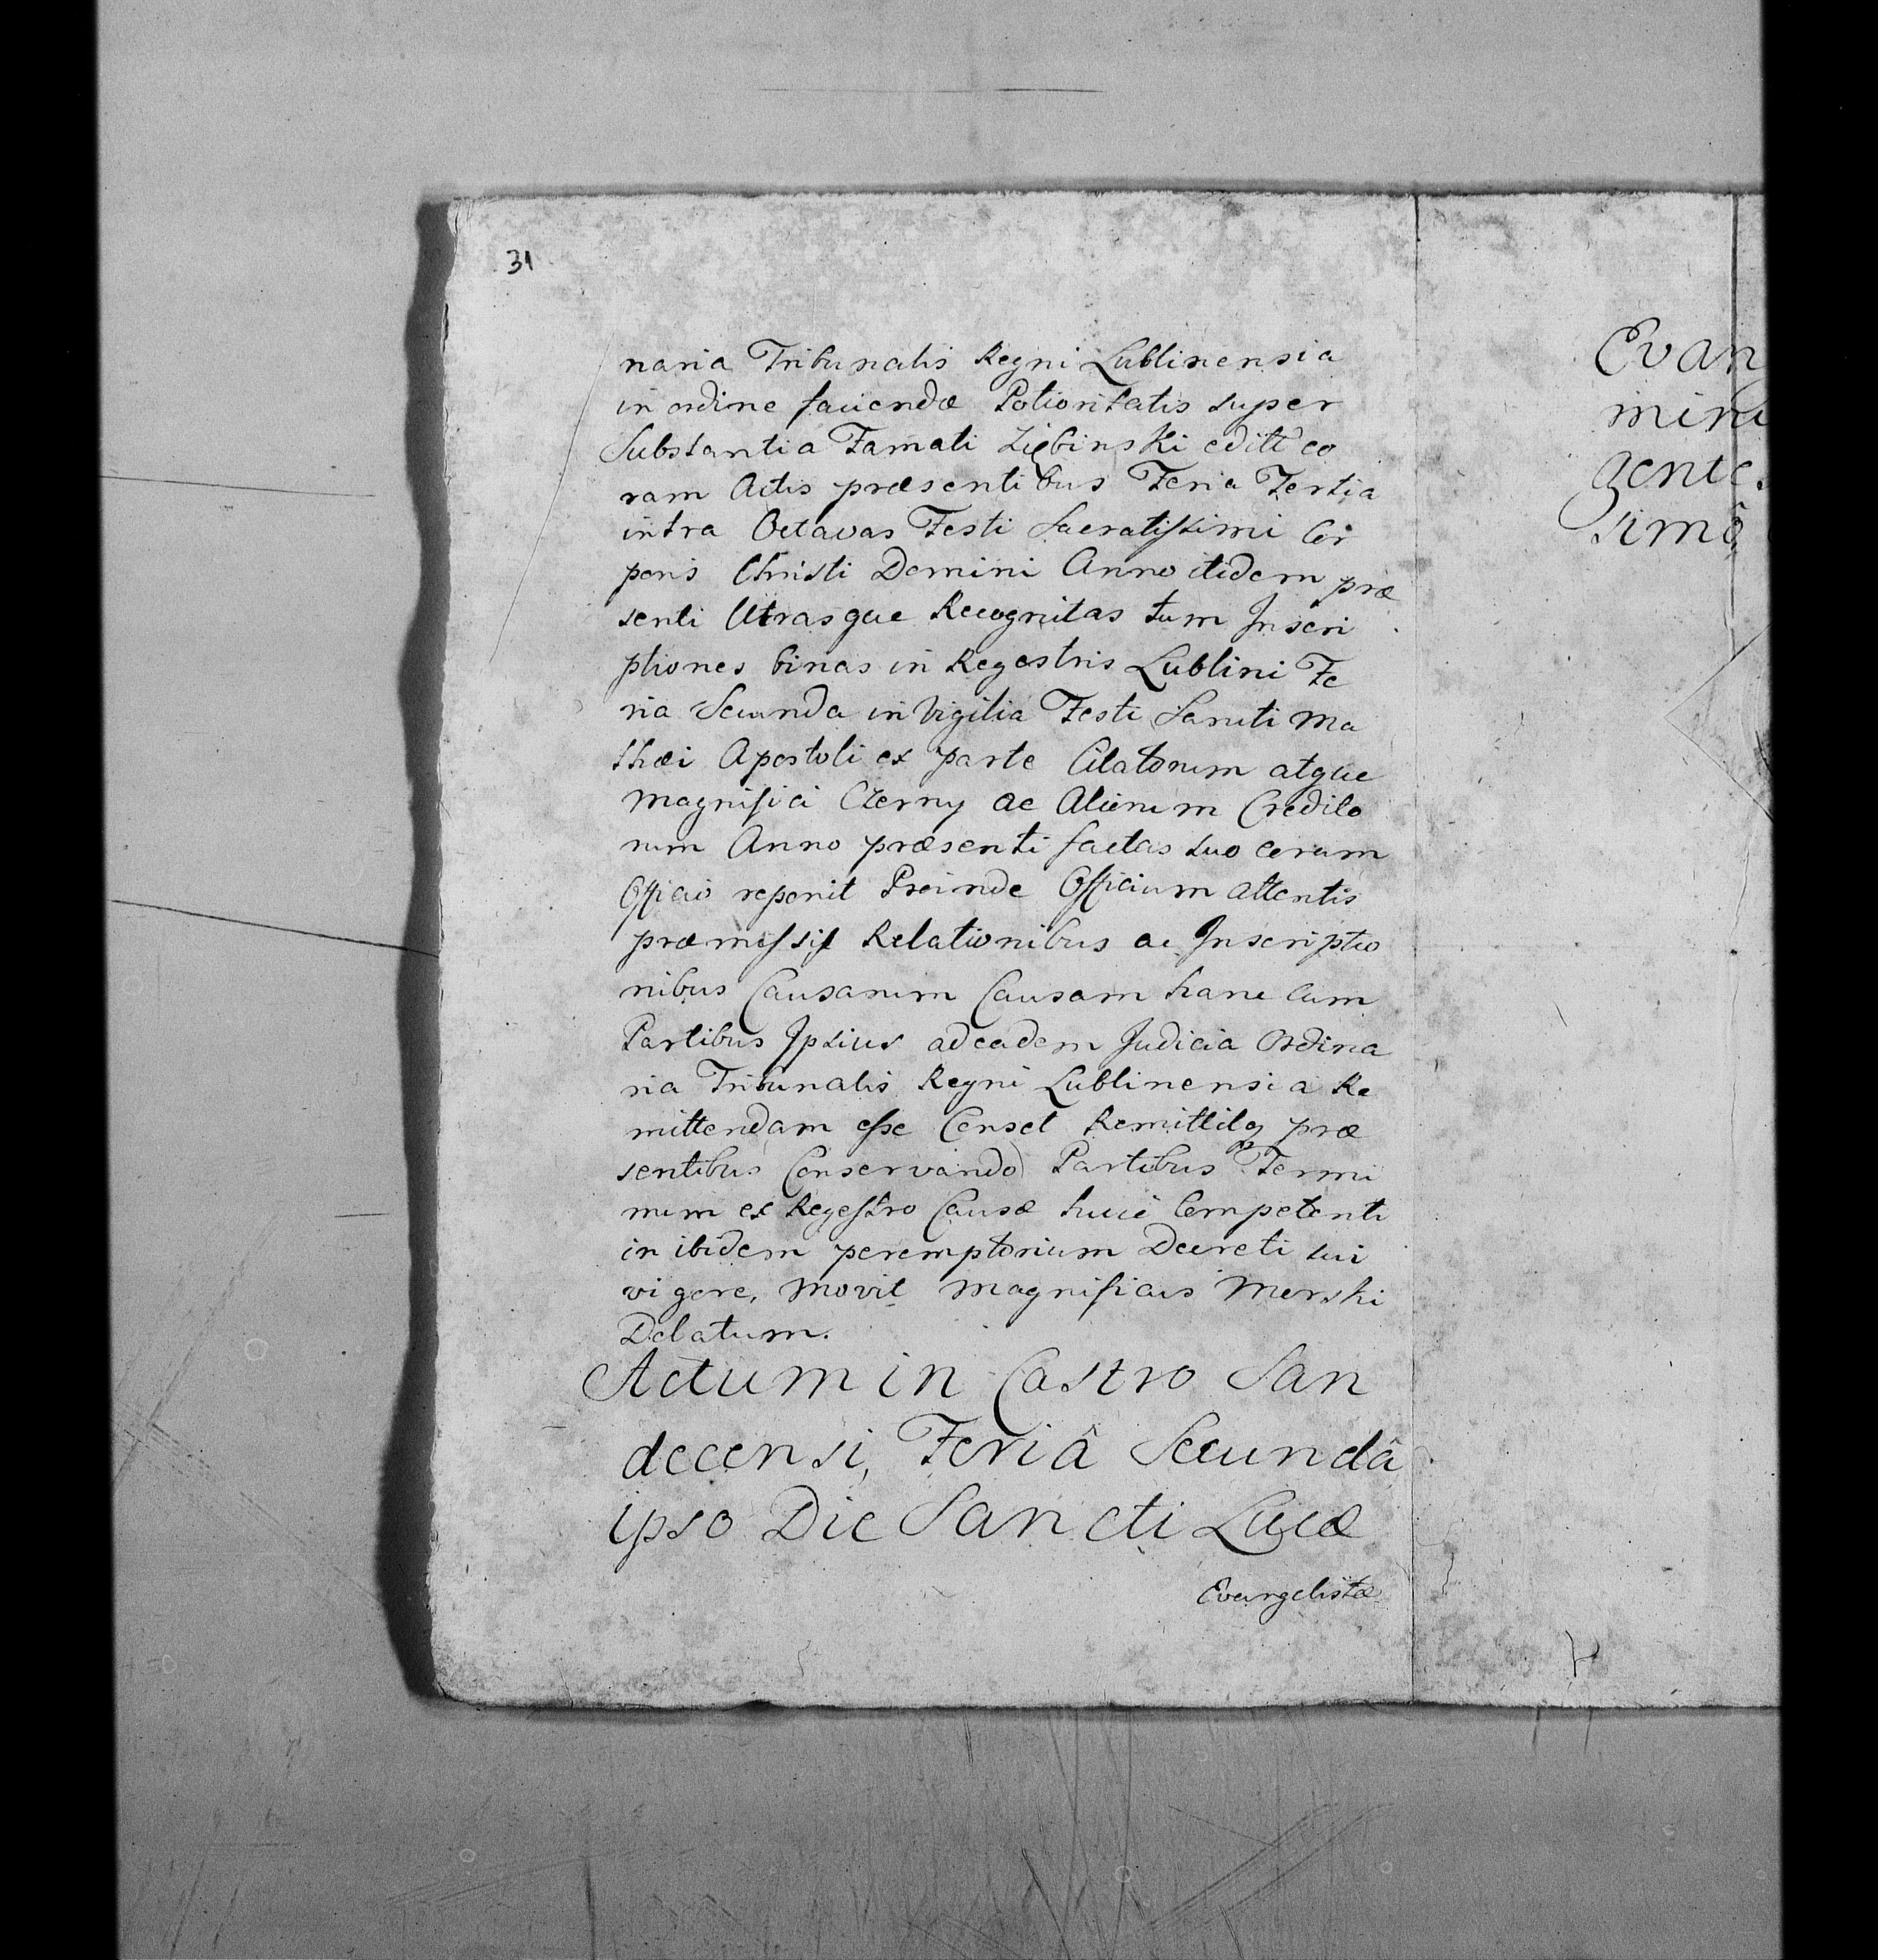 31
naria Tribunalis Regni Lublinensia
in ordine faciendæ Potioritatis super
Substantia Famati Ziębinski editt co
ram Actis præsentibus Feria Tertia
intra Octavas Festi Sacratissimi Cor
poris Christi Domini Anno itidem præ
senti Utrasque Recognitas tum Inscri
ptiones binas in Regestris Lublini Fe
ria Secunda in Vigilia Festi Sancti Ma
thæi Apostoli ex parte Citatorum atque
Magnifici Czerny ac Aliorum Credito
rum Anno præsenti factas suo coram
Officio reponit Proinde Officium attentis
præmissis Relationibus ac Inscriptio
nibus Causarum Causam hanc cum
Partibus Ipsius ad eadem Judicia Ordina
ria Tribunalis Regni Lublinensia Re
mittendam esse Censet Remittitq præ
sentibus Conservando Partibus Termi
num ex Regestro Causæ huic Competenti
in ibidem peremptorium Decreti sui
vigore, Movit Magnificus Merski
Delatum.
Actum in Castro San
decensi, Feriâ Secundâ
ipso Die Sancti Lucæ
Evangelistæ
Evan
mini
gente
simô